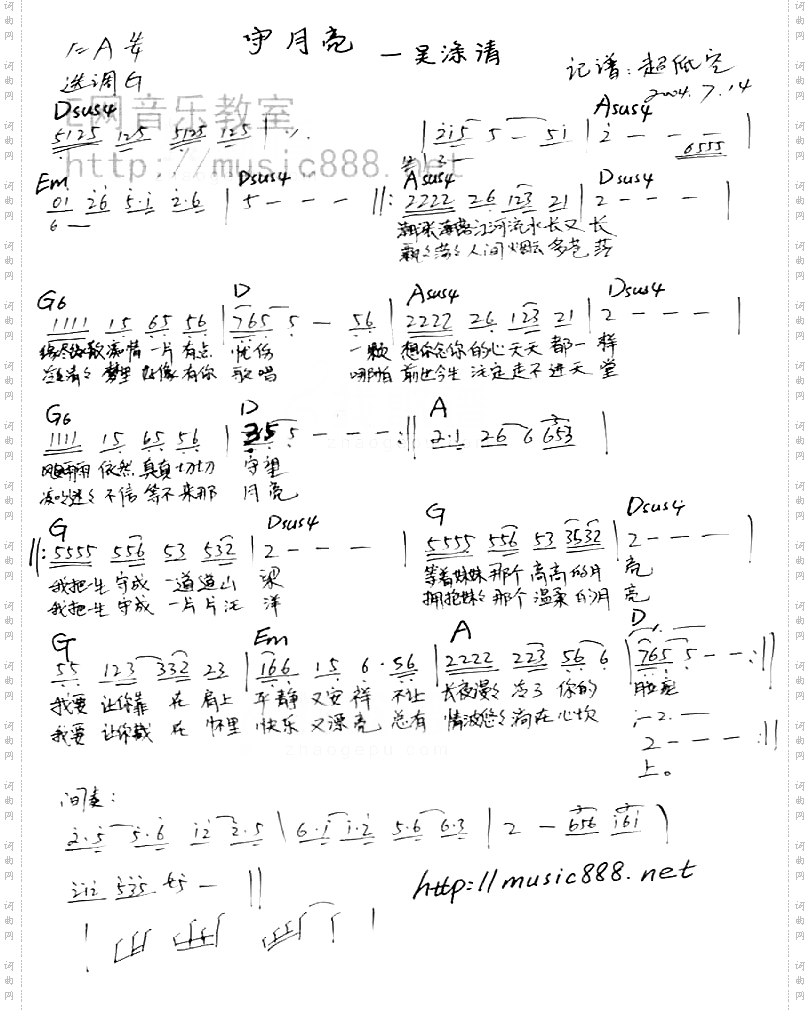 守月亮 — 吴涤清
1=A 4/4
选调G
记谱:超低空
2004.7.14
E网音乐教室
http://music888.net
Dsus4 Asus4
5125 125 5125 125 | 215 5 — 51 | 2 - - - 6555
Em Dsus4 Asus4 Dsus4
01 26 5·1 2·6 | 5 - - - ||: 2222 26 123 21 | 2 - - - |
6 —
潮涨潮落江河流水长又长
飘飘荡荡人间烟云多苍茫
G6 D Asus4 Dsus4
1111 15 65 56 | 765 5 — 56 | 2222 26 123 21 | 2 - - - |
痴情一片有点 忧伤 一颗 想你念你的心天天都一样
冷冷清清梦里好像有你 歌唱 哪怕 前世今生注定走不进天堂
G6 D A
1111 15 65 56 | 35 5 - - - :|| 2·1 26 6 653 |
风风雨雨依然真真切切 守望
不信等不来那 月亮
G Dsus4 G Dsus4
||: 5555 556 53 532 | 2 - - - | 5555 556 53 3532 | 2 - - - |
我把一生守成一道道山 梁 等着妹妹那个高高的月 亮
我把一生守成一片片汪 洋 拥抱妹妹那个温柔的月 亮
G Em A D
55 123 332 23 | 166 15 6·56 | 2222 223 56 6 | 765 5 - - :||
我要 让你靠 在 肩上 平静 又安祥 不让 长夜漫漫冷了你的 脸庞
我要 让你 在 怀里 快乐 又漂亮 总有 情波悠悠淌在心坎
1 - 2. —
2 - - - :||
上。
间奏:
2·5 5·6 12 2·5 | 6·1 1·2 5·6 6·3 | 2 — 656 161 |
212 535 45 — ||
http://music888.net
zhaogepu.com
词曲网